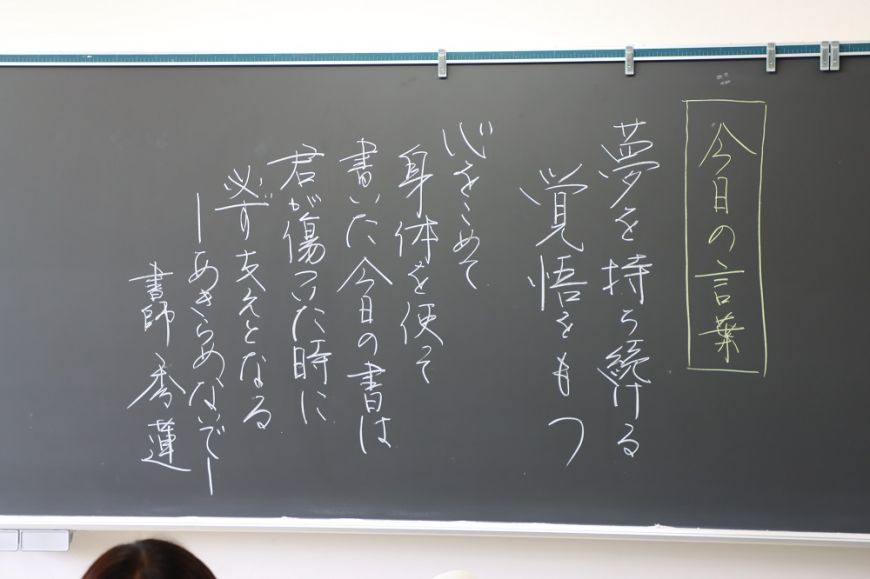 今日の言葉
夢を持ち続ける
覚悟をもつ
心をこめて
身体を使って
書いた今日の書は
君が傷ついた時に
必ず支えとなる
―あきらめないで―
書師 秀蓮